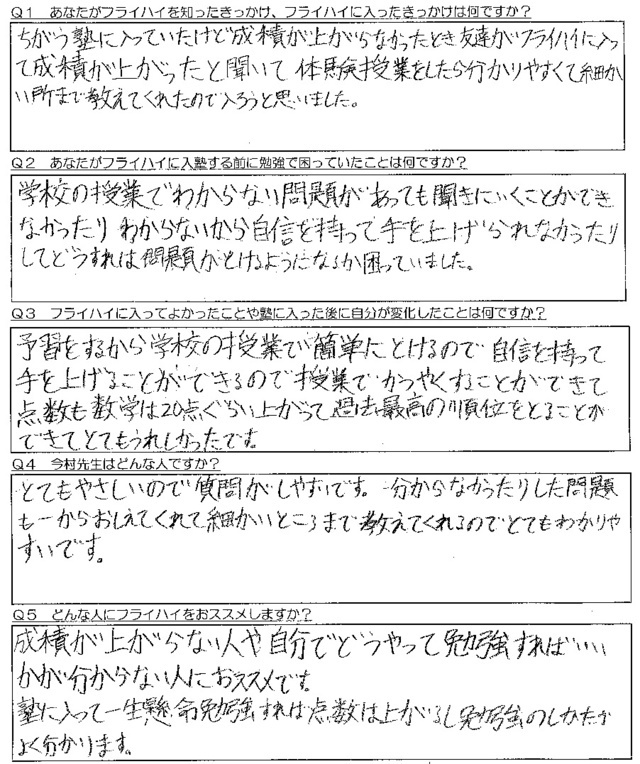 Q1　あなたがフライハイを知ったきっかけ、フライハイに入ったきっかけは何ですか？
ちがう塾に入っていたけど成積が上がらなかったとき友達がフライハイに入っ
て成積が上がったと聞いて 体験授業をしたら分かりやすくて細か
い所まで教えてくれたので入ろうと思いました。
Q2　あなたがフライハイに入塾する前に勉強で困っていたことは何ですか？
学校の授業でわからない問題があっても聞きにいくことができ
なかったり わからないから自信を持って手を上げられなかったり
してどうすれば問題がとけるようになるか困っていました。
Q3　フライハイに入ってよかったことや塾に入った後に自分が変化したことは何ですか？
予習をするから学校の授業で簡単にとけるので 自信を持って
手を上げることができるので授業でかつやくすることができて
点数も数学は20点ぐらい上がって過去最高の順位をとることが
できてとてもうれしかったです。
Q4　今村先生はどんな人ですか？
とてもやさしいので質問がしやすいです。分からなかったりした問題
も一からおしえてくれて細かいところまで教えてくれるのでとてもわかりや
すいです。
Q5　どんな人にフライハイをおススメしますか？
成積が上がらない人や自分でどうやって勉強すればいい
かが分からない人におススメです。
塾に入って一生懸命勉強すれば点数は上がるし勉強のしかたが
よく分かります。